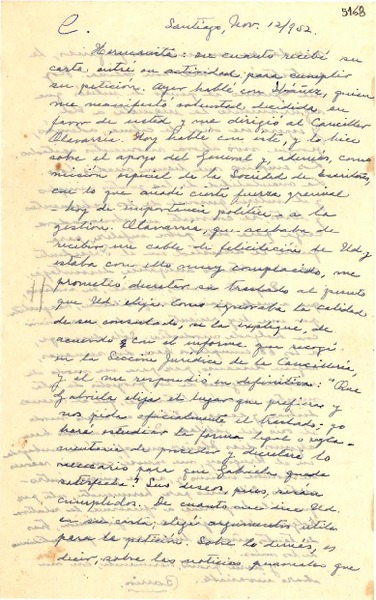 5168
C.
Santiago, Nov. 12/952.
Hermanita: en cuanto recibí su
carta, entré en actividad para cumplir
su petición. Ayer hablé con Ibáñez, quien
me manifestó voluntad decidida en
favor de usted y me dirigió al Canciller
Olavarría. Hoy hablé con éste, y lo hice
sobre el apoyo del General y, además, como
misión especial de la Sociedad de Escritores,
con lo que añadí cierta fuerza gremial
- hoy de importancia política - a la
gestión. Olavarría, que acababa de
recibir un cable de felicitación de Ud. y
estaba con ello muy complacido, me
prometió decretar su traslado al punto
que Ud. elija. Como ignoraba la calidad
de su consulado, se la expliqué, de
acuerdo con el informe que recogí
en la Sección Jurídica de la Cancillería,
y él me respondió en definitiva: "Que
Gabriela elija el lugar que prefiera y
nos pida oficialmente el traslado; yo
haré estudiar la forma legal o regla-
mentaria de proceder y decretaré lo
necesario para que Gabriela quede
satisfecha". Sus deseos, pues, serán
cumplidos. De cuanto me dice Ud.
en su carta, elegí argumentos útiles
para la petición. Sobre lo demás, es
decir, sobre las noticias personales que